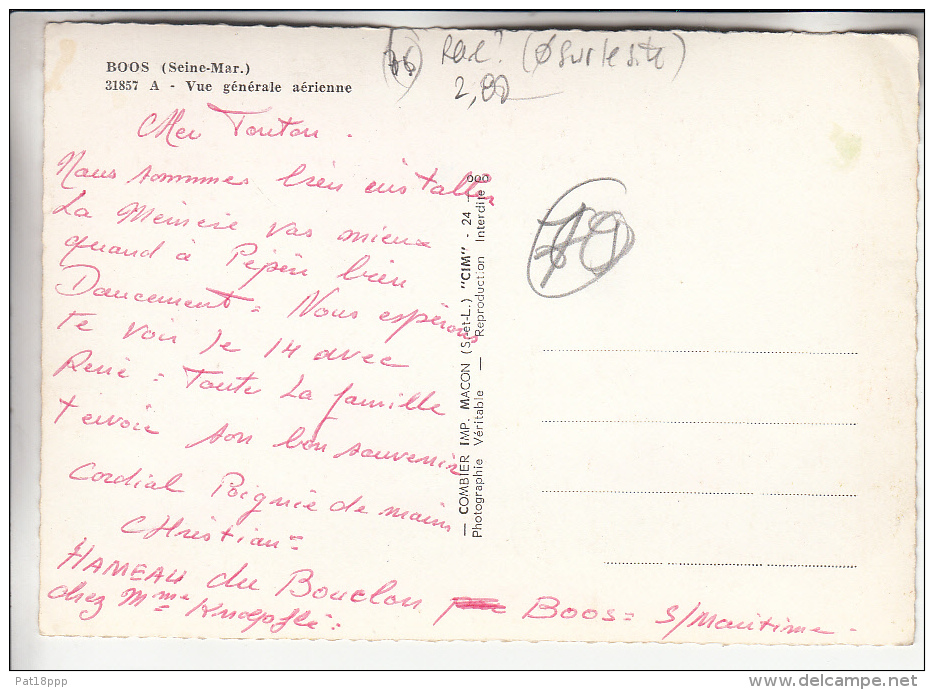 BOOS (Seine-Mar.)
31857 A - Vue générale aérienne
76 Rec? (Ø sur le site)
2,80
Cher Tonton.
Nous sommes bien installer
La Mémére vas mieux
quand à Pépèn bien
Doucement = Nous espérons
te voir le 14 avec
René = Toute La famille
t'envoie son bon souvenir
Cordial Poignée de mains
CHristian =
HAMEAU du Bouclon BOOS = S/Maritime -
chez Mme
— COMBIER IMP. MACON (S.-et-L.) "CIM" - 24 - 000
Photographie Véritable — Reproduction Interdite
Pat18ppp
delcampe.net